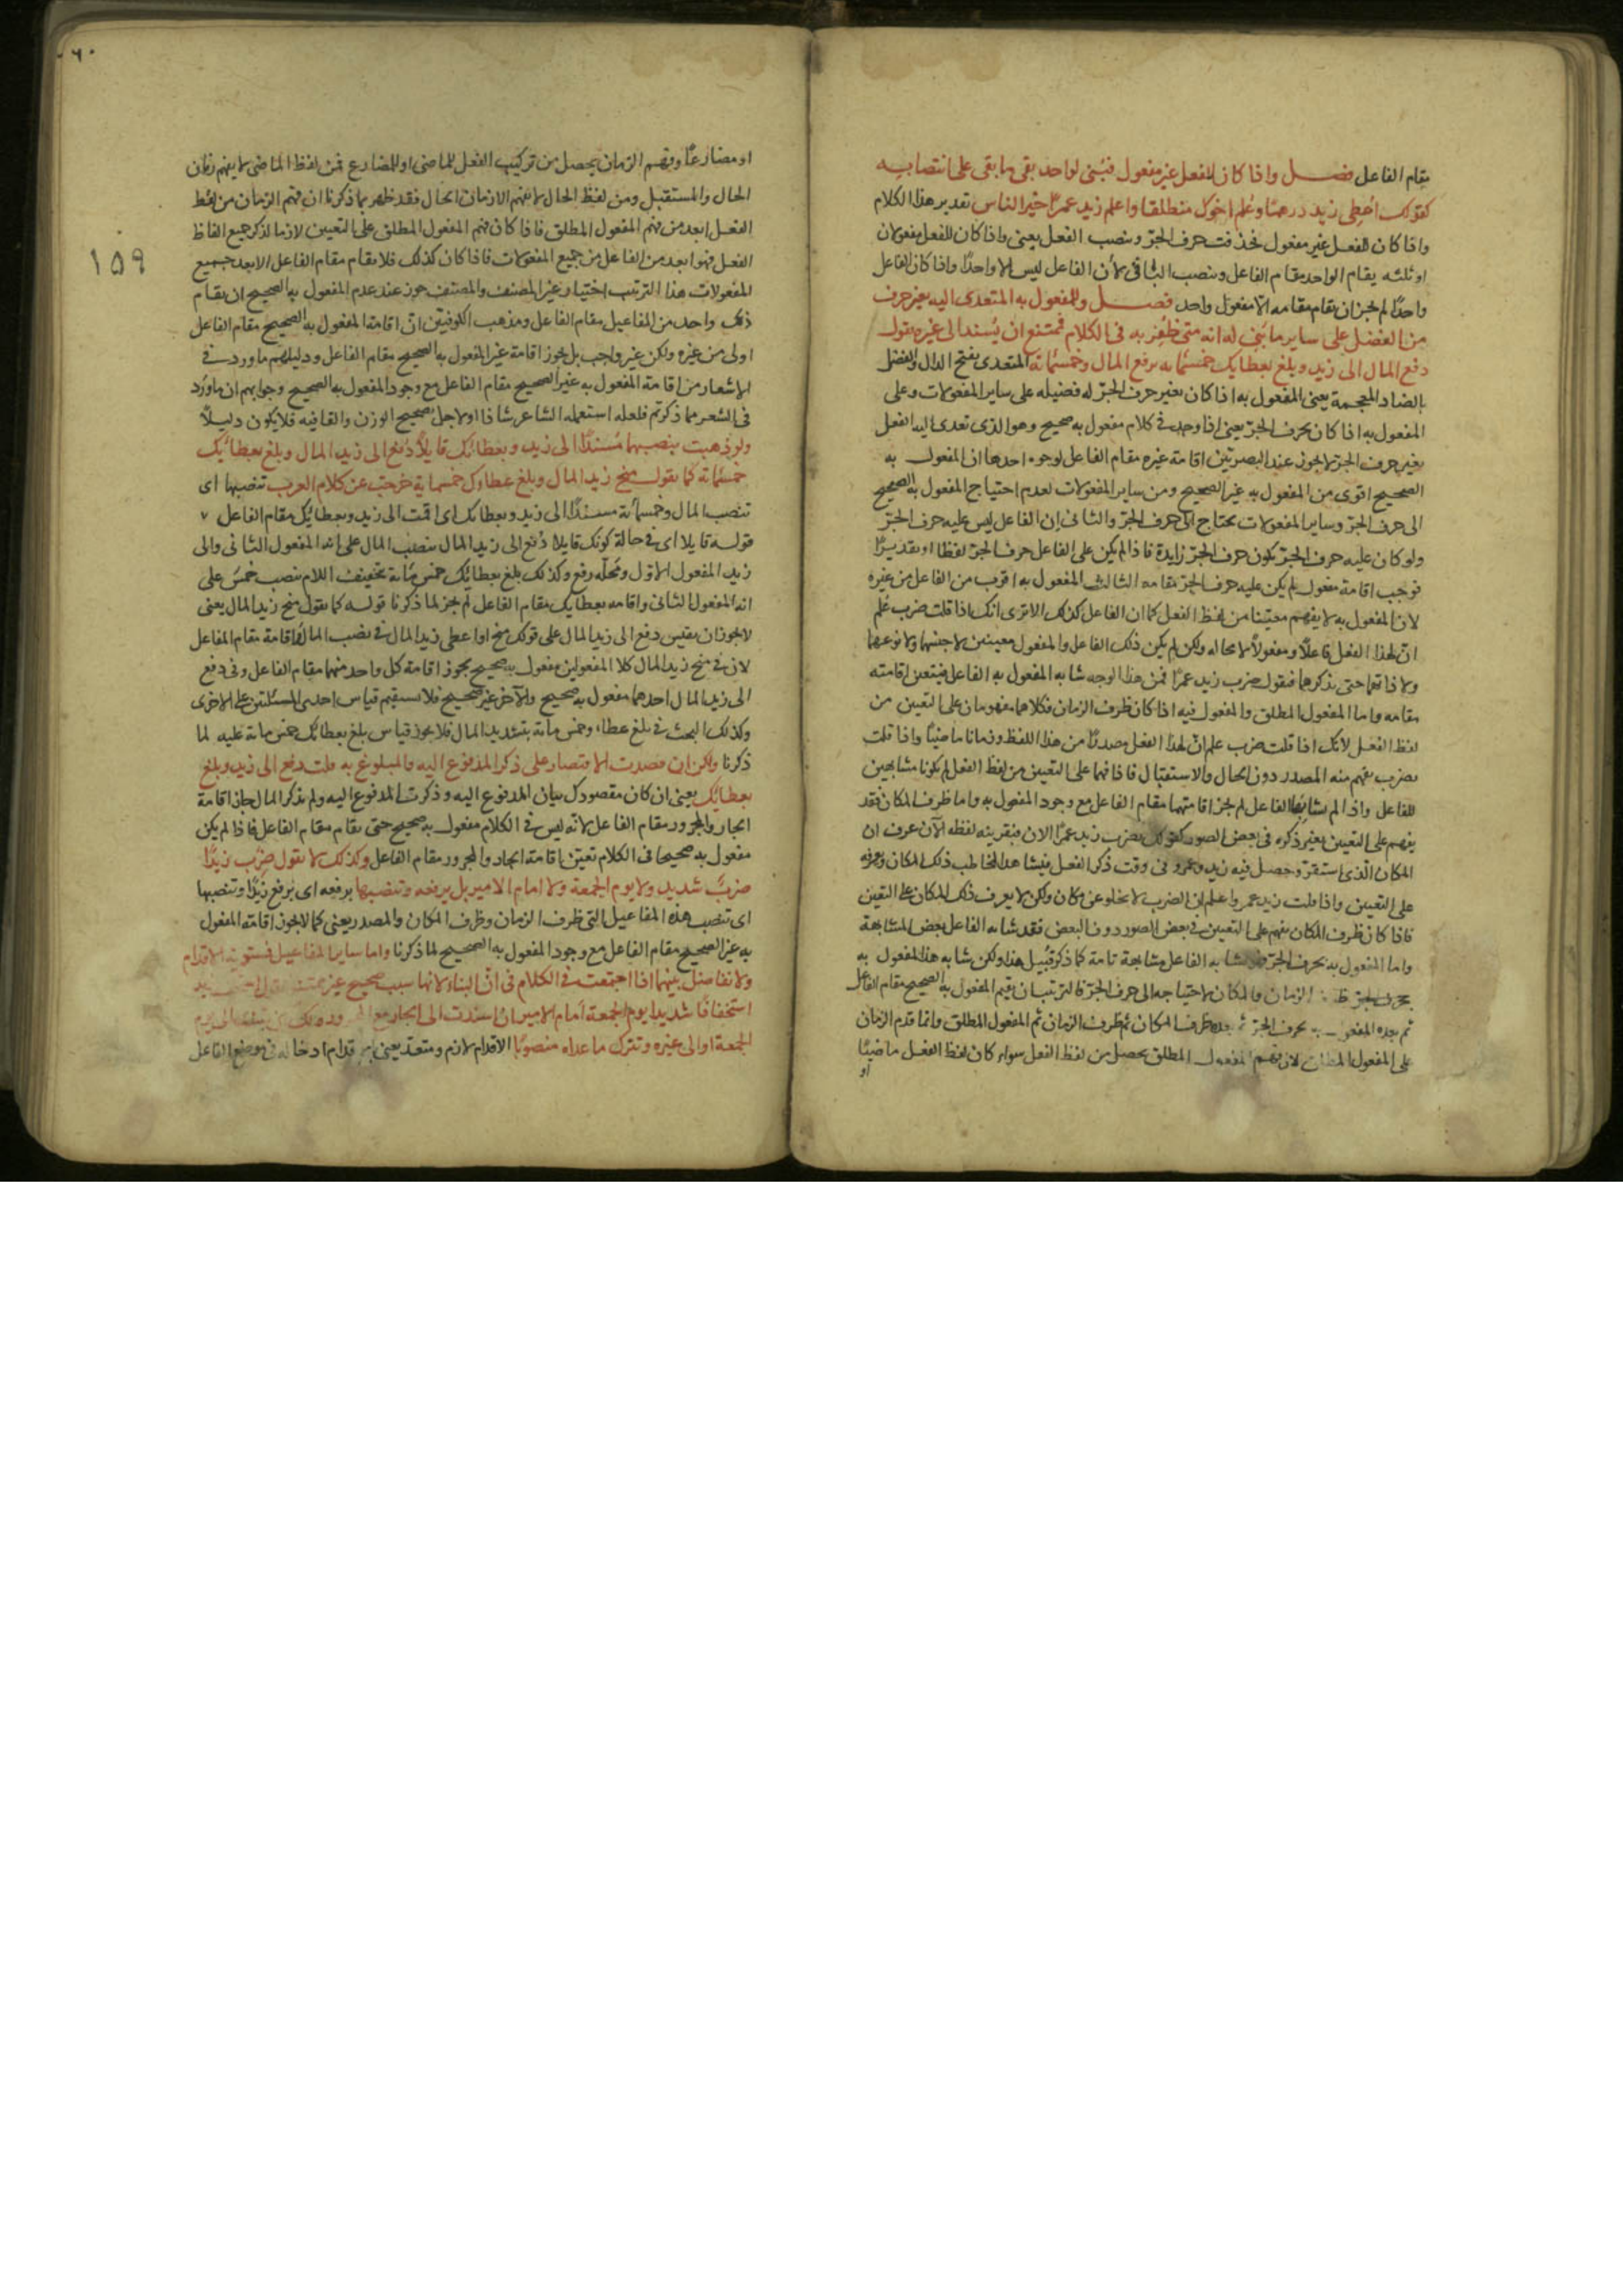 مقام الفاعل فصل واذا كان للفعل غير مفعول فبنى لواحد بقى ما بقى على انتصابه
كقولك اعطى زيد درهما وعلم اخوك منطلقا واعلم زيد عمرا خير الناس تقدير هذا الكلام
واذا كان للفعل غير مفعول فحذفت حرف الجر ونصب الفعل يعنى واذا كان للفعل مفعولان
او ثلثه يقام الواحد مقام الفاعل وينصب الباقى لأن الفاعل ليس الا واحدا واذا كان الفاعل
واحدا لم يجز ان يقام مقامه الا مفعول واحد فصل وللمفعول به المتعدى اليه بغير حرف
من الفضل على ساير ما بنى له انه متى ظفر به فى الكلام فممتنع ان يسند الى غيره تقول
دفع المال الى زيد وبلغ بعطايك خمسمايه برفع المال وخمسماية المتعدى بفتح الدال والفضل
بالضاد المعجمة يعنى المفعول به اذا كان بغير حرف الجر له فضيله على ساير المفعولات وعلى
المفعول به اذا كان بحرف الجر يعنى اذا وجد فى كلام مفعول به صحيح وهو الذى تعدى اليه الفعل
بغير حرف الجر لا يجوز عند البصريين اقامة غيره مقام الفاعل لوجوه احدها ان المفعول به
الصحيح اقوى من المفعول به غير الصحيح ومن ساير المفعولات لعدم احتياج المفعول به الصحيح
الى حرف الجر وساير المفعولات يحتاج الى حرف الجر والثانى ان الفاعل ليس عليه حرف الجر
ولو كان عليه حرف الجر يكون حرف الجر زايدة فاذا لم يكن على الفاعل حرف الجر لفظا او تقديرا
فوجب اقامة مفعول لم يكن عليه حرف الجر مقامه الثالث المفعول به اقرب من الفاعل من غيره
لان المفعول به لا يفهم معينا من لفظ الفعل كما ان الفاعل كذلك الا ترى انك اذا قلت ضرب علم
ان لهذا الفعل فاعلا ومفعولا لا محاله ولكن لم يكن ذلك الفاعل والمفعول معينين لا جنسهما ولا نوعهما
ولا ذاتهما حتى يذكرهما فيقول ضرب زيد عمرا فمن هذا الوجه شابه المفعول به الفاعل فيتعين اقامته
مقامه واما المفعول المطلق والمفعول فيه اذا كان ظرف الزمان فكلاهما مفهومان على التعيين من
لفظ الفعل لانك اذا قلت ضرب علم ان لهذا الفعل مصدرا من هذا اللفظ وزمانا ماضيا واذا قلت
يضرب يفهم منه المصدر دون الحال والاستقبال فاذا فهما على التعيين من لفظ الفعل لم يكونا مشابهين
للفاعل واذا لم يشابها الفاعل لم يجز اقامتهما مقام الفاعل مع وجود المفعول به واما ظرف المكان فقد
يفهم على التعيين بغير ذكره فى بعض الصور كقولك يضرب زيد عمرا الان فبقرينه لفظه الآن عرف ان
المكان الذى استقر وحصل فيه زيد وعمرو فى وقت ذكر الفعل فيشاهد المخاطب ذلك المكان ويعرفه
على التعيين واذا قلت زيد عمر واعلم ان الضرب لا يخلو عن مكان ولكن لا يعرف ذلك المكان على التعيين
فاذا كان ظرف المكان يفهم على التعيين فى بعض الصور دون البعض فقد شابه الفاعل بعض المشابهة
واما المفعول به بحرف الجر يشابه الفاعل مشابهة تامة كما ذكر قبيل هذا ولكن شابه هذا المفعول به
بحرف الجر الزمان والمكان لاحتياجه الى حرف الجر فالترتيب ان يقيم المفعول به الصحيح مقام الفاعل
ثم بعده المفعول به بحرف الجر ثم بعده ظرف المكان ثم ظرف الزمان ثم المفعول المطلق وانما قدم الزمان
على المفعول المطلق لان فهم المفعول المطلق يحصل من لفظ الفعل سواء كان لفظ الفعل ماضيا
او
٦٠
١٥٩
او مضارعا وفهم الزمان يحصل من تركيب الفعل للماضى او للمضارع فمن لفظ الماضى لا يفهم زمان
الحال والمستقبل ومن لفظ الحال لا يفهم الا زمان الحال فقد ظهر بما ذكرنا ان فهم الزمان من لفظ
الفعل ابعد من فهم المفعول المطلق فاذا كان فهم المفعول المطلق على التعيين لازما لذكر جميع الفاظ
الفعل فهو ابعد من الفاعل من جميع المفعولات فاذا كان كذلك فلا يقام مقام الفاعل الا بعد جميع
المفعولات هذا الترتيب اختيار غير المصنف والمصنف جوز عند عدم المفعول به الصحيح ان يقام
ذلك واحد من المفاعيل مقام الفاعل ومذهب الكوفيين ان اقامة المفعول به الصحيح مقام الفاعل
اولى من غيره ولكن غير واجب بل يجوز اقامة غير المفعول به الصحيح مقام الفاعل ودليلهم ما ورد فى
الاشعار من اقامة المفعول به غير الصحيح مقام الفاعل مع وجود المفعول به الصحيح وجوابهم ان ما ورد
فى الشعر مما ذكرتم فلعله استعمله الشاعر شاذا او لاجل تصحيح الوزن والقافيه فلا يكون دليلا
ولو ذهبت بنصبهما مسندا الى زيد وبعطائك قايلا دفع الى زيد المال وبلغ بعطائك
خمسماية كما تقول منح زيد المال وبلغ عطاوك خمسماية خرجت عن كلام العرب تنصبها اى
تنصب المال وخمسمائة مسندا الى زيد وبعطائك اى اقمت الى زيد وبعطائك مقام الفاعل
قوله قايلا اى فى حالة كونك قايلا دفع الى زيد المال بنصب المال على انه المفعول الثانى والى
زيد المفعول الاول ومحله رفع وكذلك بلغ بعطائك خمس مائة بتخفيف اللام بنصب خمس على
انه المفعول الثانى واقامه بعطايك مقام الفاعل لم يجز لما ذكرنا قوله كما تقول منح زيد المال يعنى
لا يجوز ان يقيس دفع الى زيد المال على قولك منح او اعطى زيد المال فى نصب المال واقامة مقام الفاعل
لان فى منح زيد المال كلا المفعولين مفعول به صحيح يجوز اقامة كل واحد منهما مقام الفاعل وفى دفع
الى زيد المال احدهما مفعول به صحيح والآخر غير صحيح فلا يستقيم قياس احدى المسئلتين على الاخرى
وكذلك البحث فى بلغ عطاء وخمس ماية بتشديد المال فلا يجوز قياس بلغ بعطائك خمس ماية عليه لما
ذكرنا ولكن ان قصدت الاقتصار على ذكر المدفوع اليه والمبلوغ به قلت دفع الى زيد وبلغ
بعطائك يعنى ان كان مقصودك بيان المدفوع اليه وذكرت المدفوع اليه ولم يذكر المال جاز اقامة
الجار والمجرور مقام الفاعل لانه ليس فى الكلام مفعول به صحيح حتى يقام مقام الفاعل فاذا لم يكن
مفعول به صحيحا فى الكلام تعين اقامة الجار والمجرور مقام الفاعل وكذلك لا تقول ضرب زيدا
ضرب شديد ولا يوم الجمعة ولا امام الامير بل برفعه وتنصبها برفعه اى يرفع زيدا وتنصبها
اى تنصب هذه المفاعيل التى ظرف الزمان وظرف المكان والمصدر يعنى كما لا يجوز اقامة المفعول
به غير الصحيح مقام الفاعل مع وجود المفعول به الصحيح لما ذكرنا واما ساير المفاعيل فمستوية الاقدام
ولا تفاضل بينهما اذا اجتمعت فى الكلام فى ان البناء لايها صحيح غير ممتنع
استخفافا شديدا يوم الجمعة امام الامير ان اسندت الى الجار مع المجرور ولك ان الى يوم
الجمعة او الى غيره وتترك ما عداه منصوبا الاقدام لازم ومتعد يعنى ادخاله فى موضع الفاعل